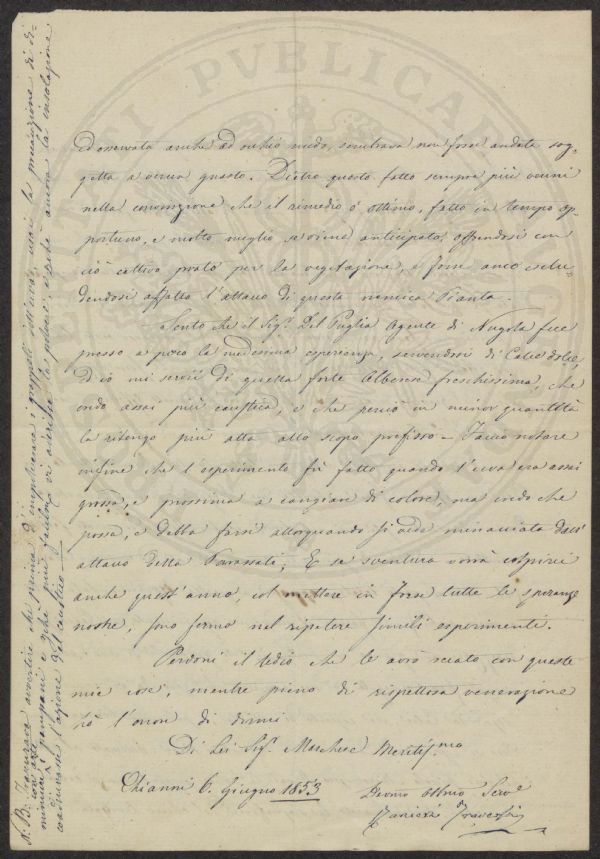 ed osservata anche ad occhio nudo, sembrava non fosse andata sog-
getta a verun guasto. Dietro questo fatto sempre più venni
nella convinzione che il rimedio è ottimo, fatto in tempo op-
portuno, e molto meglio se viene anticipato, offendosi con
ciò cattivo prato per la vegetazione, e forse anco esclu-
dendosi affatto l'attacco di questa nemica Pianta.
Sento che il Sigr. Del Puglia Agente di Nugola fece
presso a poco la medesima esperienza, servendosi di Calce dolce,
ed io mi servii di quella forte Albarese freschissima, che
credo assai più caustica, e che perciò in minor quantità
la ritengo più atta allo scopo prefisso – Faccio notare
infine che l'esperimento fù fatto quando l'uva era assai
grossa, e prossima a cangiare di colore, ma credo che
possa, e debba farsi allorquando si vede minacciata dall'
attacco della Parassita; E se sventura vorrà colpirci
anche quest'anno, col mettere in forse tutte le speranze
nostre, sono fermo nel ripetere simili esperimenti.
Perdoni il tedio che le avrò recato con queste
mie cose, mentre pieno di rispettosa venerazione
hò l'onor di dirmi
Di Lei Sigr. Marchese Meritissmo
Chianni 6. Giugno 1853
Devmo Obbmo Serve
N.B. avvertire che prima d'impolverare i grappoli usai la precauzione di di-
minuire i pampani e perchè più facilmente vi aderisse la polvere e perchè ancora la insolazione
l'azione del caustico —